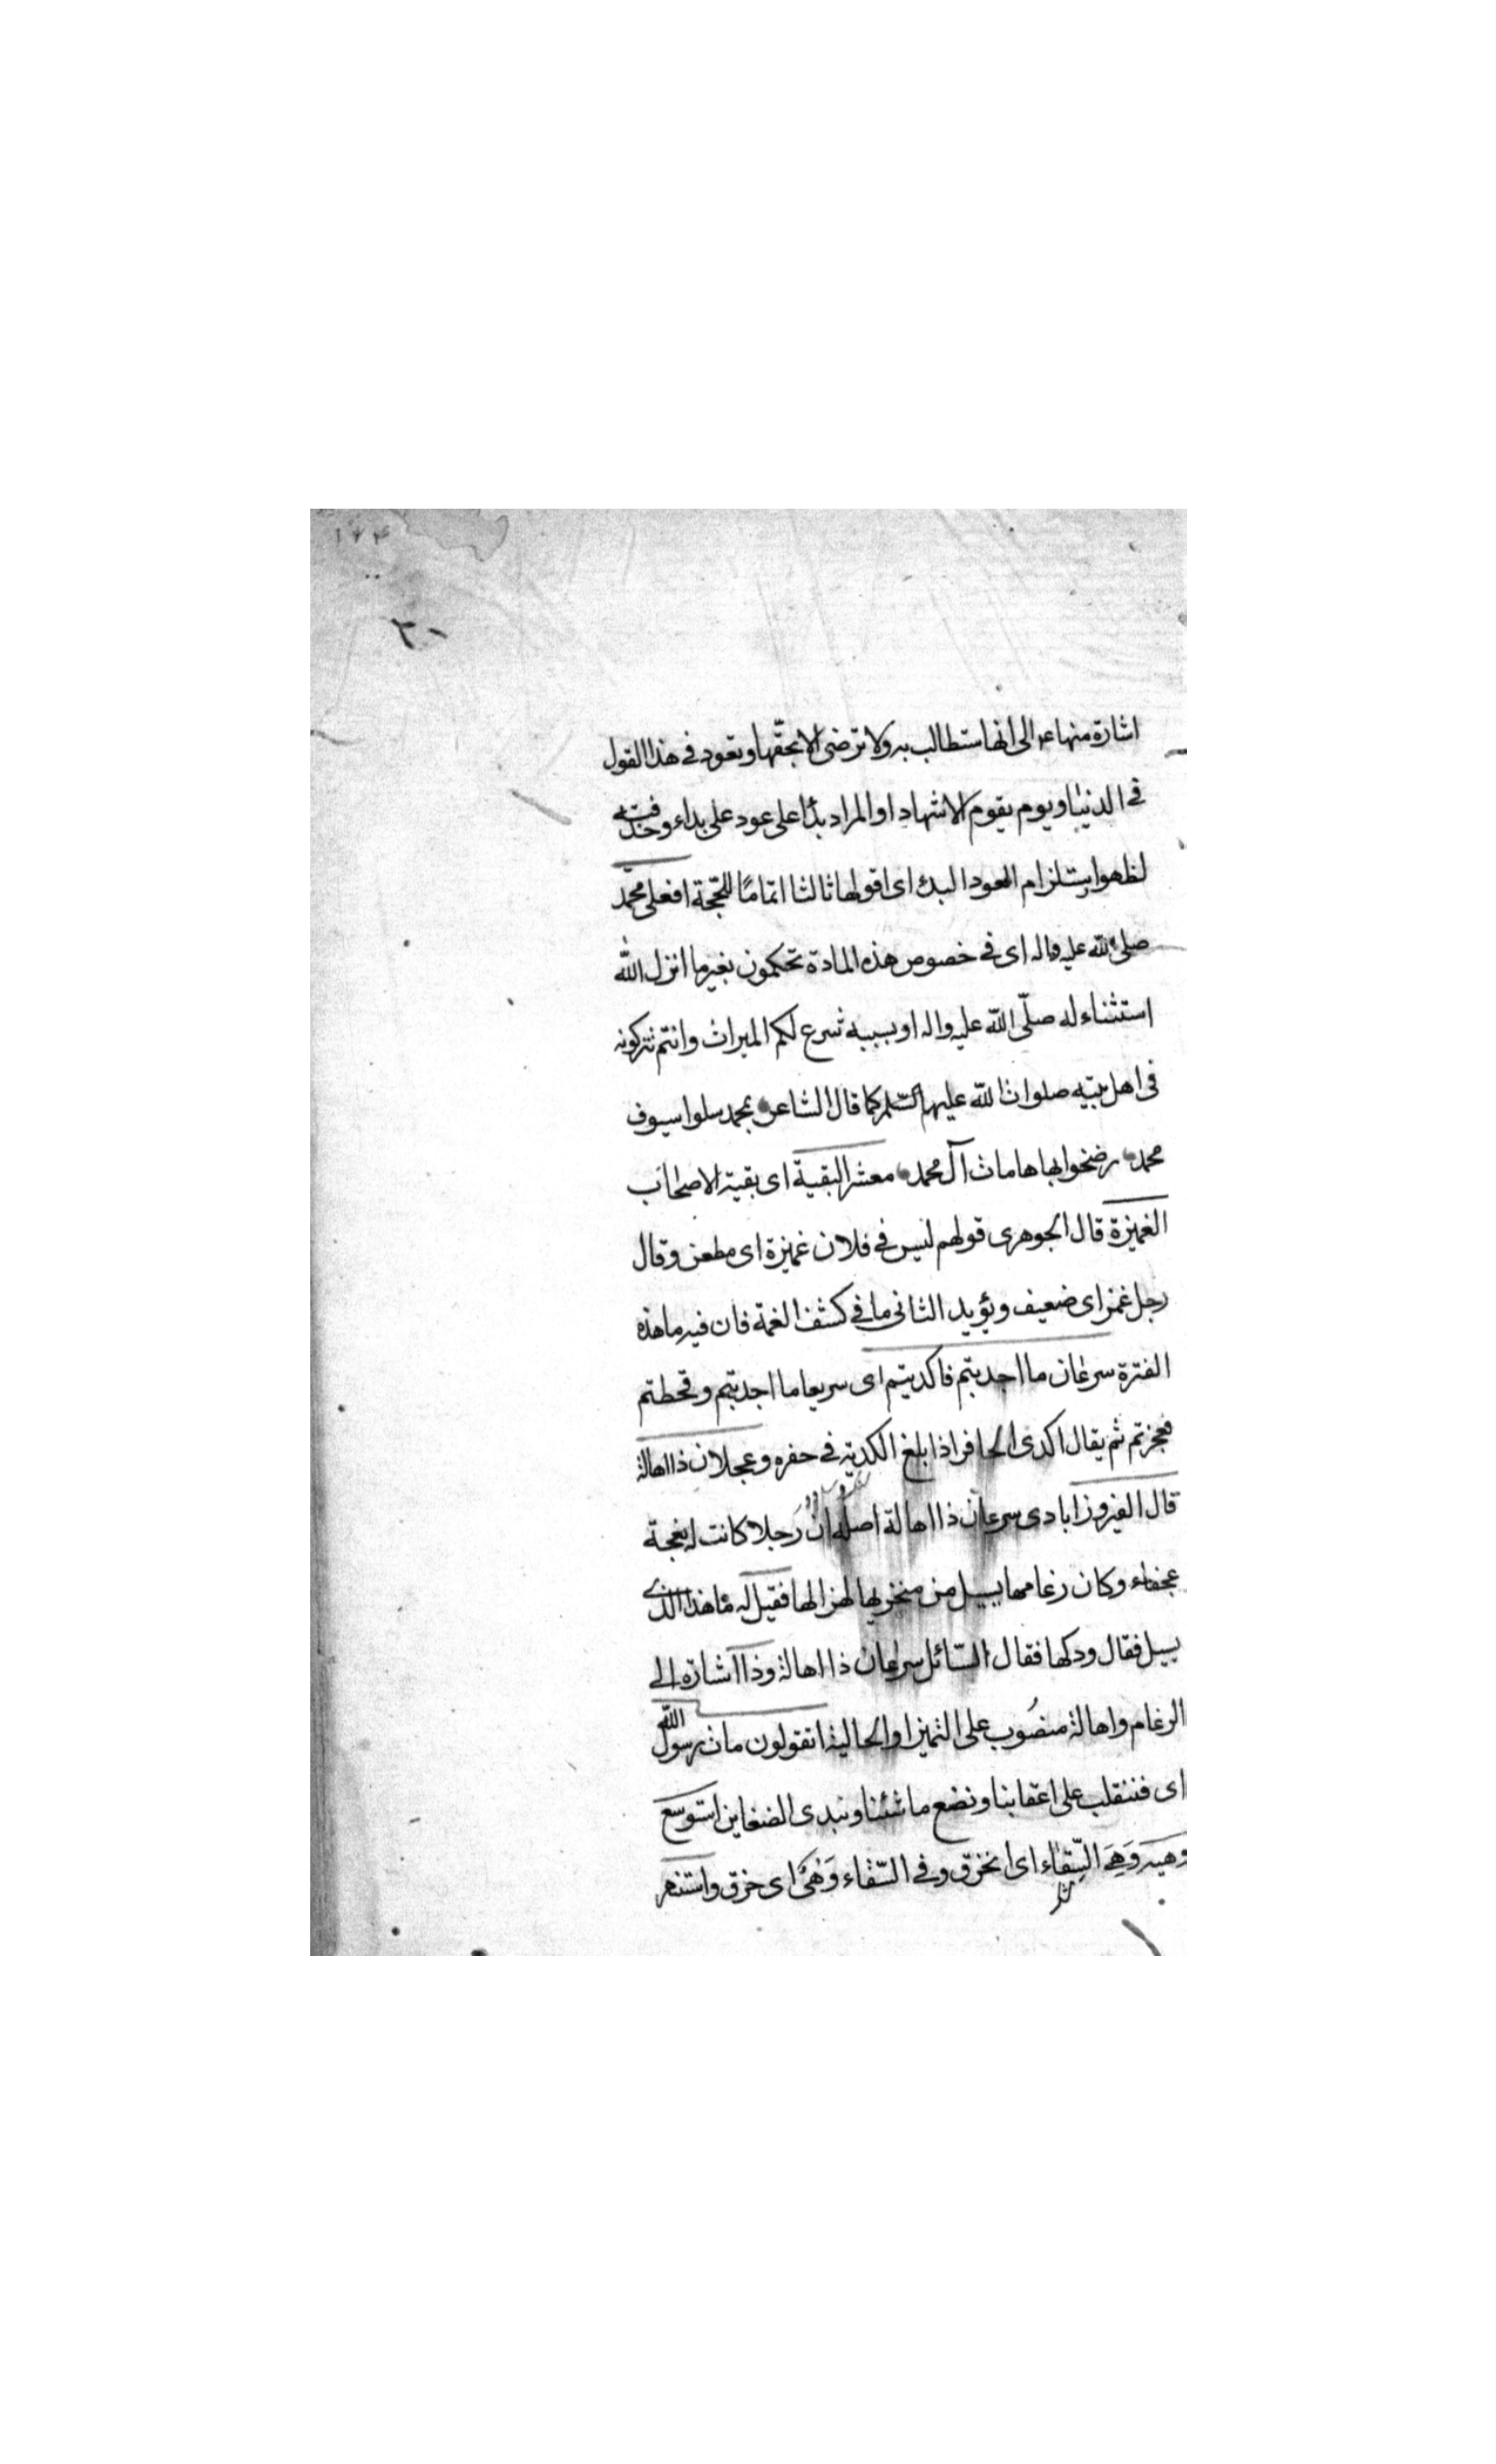 ١٧٤
٣٠
اشارة منها ع الى انها ستطالب به ولا ترضى الا بحقّها وتعود في هذا القول
في الدنيا ويوم يقوم الاشهاد او المراد بدًا على عود على بداء وحذفت
لظهور استلزام العود البدئ اى اقولها ثالثا اتمامًا للحجّة افعلى محمّد
صلى الله عليه واله اى في خصوص هذه المادة تحكمون بغير ما انزل الله
استثناء له صلّى الله عليه واله او بسببه شرع لكم الميراث وانتم تتركونه
فى اهل بيته صلوات الله عليهم السّلم كما قال الشاعر بمحمد سلوا سيوف
محمد رضخوا بها هامات آل محمد معشر البقية اى بقية الاصحاب
الغميزة قال الجوهرى قولهم ليس في فلان غميزة اى مطعن وقال
رجل غمز اى ضعيف ويؤيد الثانى ما في كشف الغمة فان فيه ما هذه
الفترة سرعان ما اجدبتم فاكديتم اى سريعا ما اجدبتم وقحطتم
فعجزتم ثم يقال اكدى الحافر اذا بلغ الكدية في حفره وعجلان ذا اهالة
قال الفيروزابادى سرعان ذا اهالة اصله ان رجلا كانت له نعجة
عجفاء وكان رغامها يسيل من منخريها لهزالها فقيل له ما هذا الذى
يسيل فقال ودكها فقال السّائل سرعان ذا اهالة وذا اشارة الى
الرغام واهالة منصُوب على التميز او الحالية اتقولون مات رسول الله
اى فننقلب على اعقابنا ونضع ما شئنا ونبدى الضغاين استوسع
وهيه وَهِىَ السِّقاء اى انخرق وفي السّقاء وَهْىٌ اى خرق واستنهر